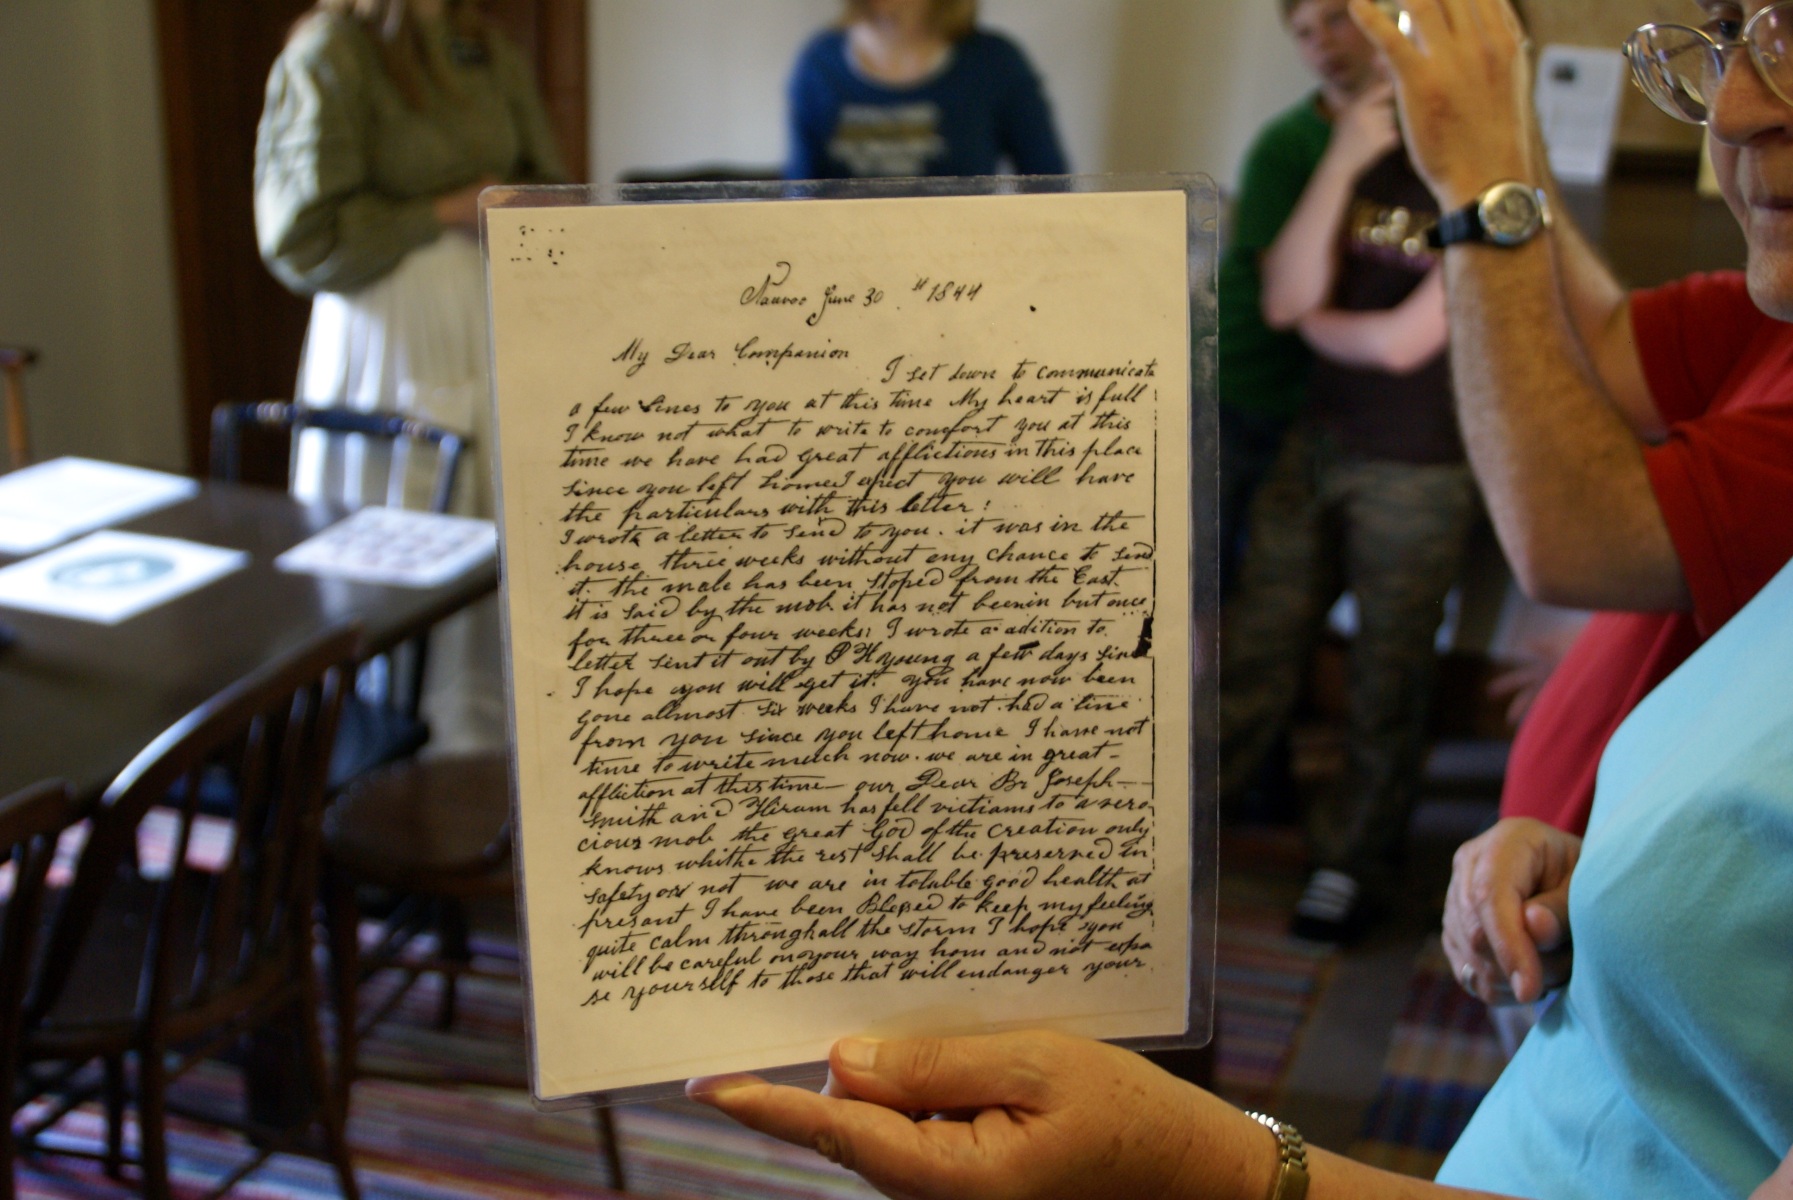 Nauvoo June 30 st 1844
My Dear Companion
I set down to communicate
a few lines to you at this time My heart is full
I know not what to write to comfort you at this
time we have had great afflictions in this place
since you left home I expect you will have
the particulars with this letter:
I wrote a letter to send to you. it was in the
house three weeks without eny chance to send
it. the male has been stoped from the East.
it is said by the mob it has not beenin but once
for three or four weeks; I wrote a adition to
letter sent it out by young a few days since
I hope you will get it. you have now been
gone allmost six weeks I have not had a line
from you since you left home I have not
time to write much now. we are in great-
affliction at this time- our Dear Br Joseph-
Smith and Hiram has fell victiams to a vero
cious mob the great God of the creation only
knows whithe the rest shall be preserved in
safety or not we are in tolable good health at
present I have been Blessed to keep my feelings
quite calm throughall the storm I hope you
will be careful on your way hom and not expo
se yourself to those that will endanger your